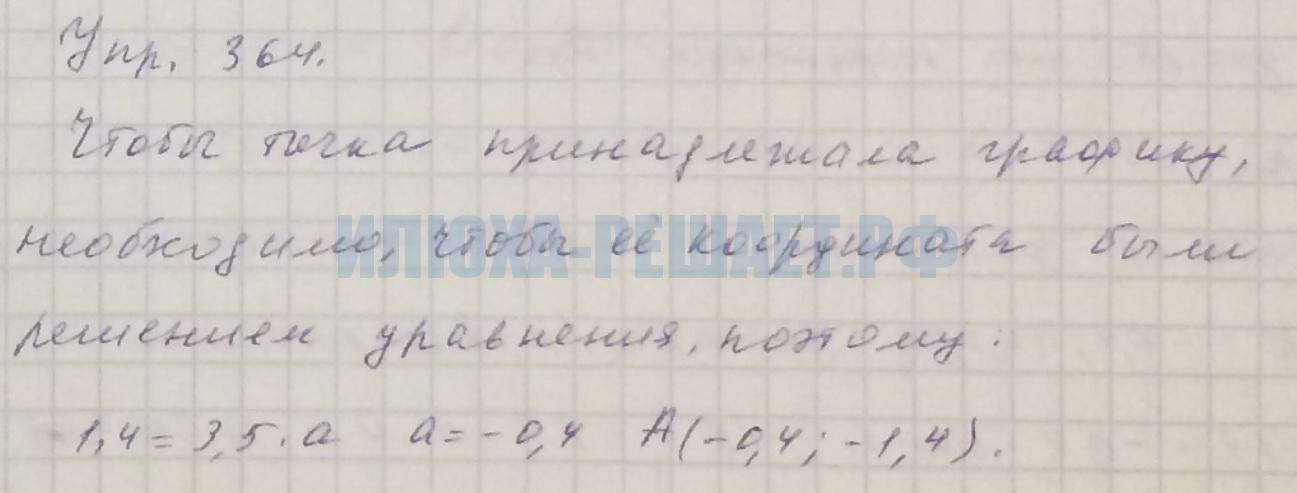 Упр. 364.
Чтобы точка принадлежала графику,
необходимо, чтобы её координата были
ИЛЮХА-РЕШАЕТ.РФ
решением уравнения, поэтому:
-1,4 = 3,5 · a a = -0,4 A(-0,4; -1,4).